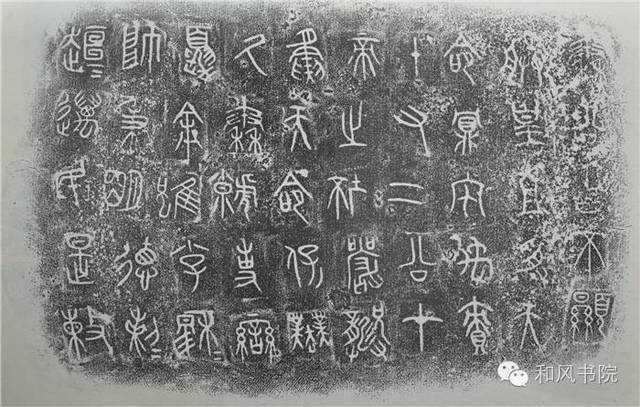 秦公曰不顯
朕皇且受天
命鼏宅禹責
十又二公才
帝之坏嚴龏
夤天命保業
厥秦虩事䜌
夏余雖小子穆=
帥秉明德剌=
趄=萬民是敕
和风书院